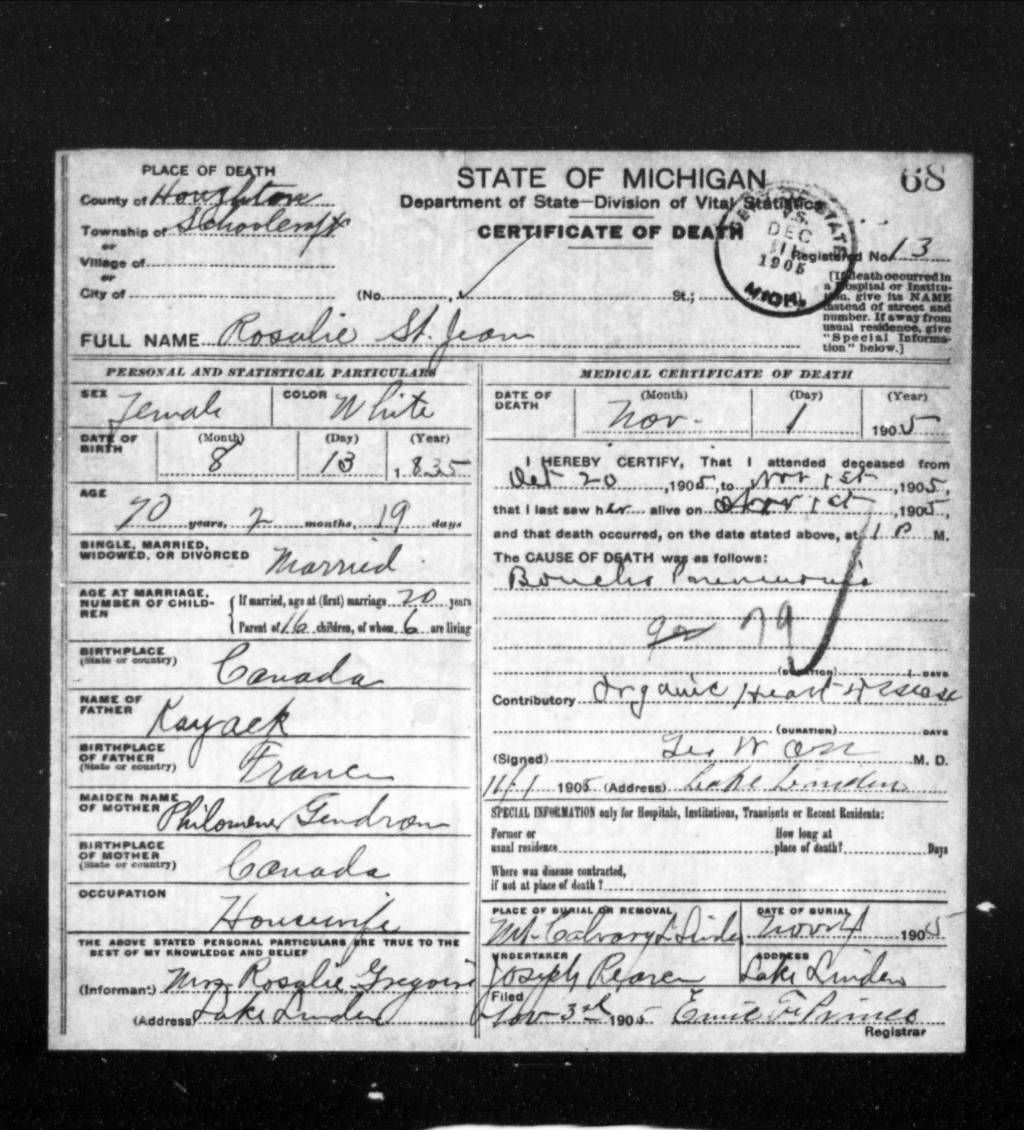 PLACE OF DEATH
County of Houghton
Township of Schoolcraft
or
Village of
or
City of (No. , St.;
STATE OF MICHIGAN
Department of State—Division of Vital Statistics
CERTIFICATE OF DEATH
68
DEC 11 1905
MICH.
Registered No. 13
[If death occurred in
a Hospital or Institu-
tion, give its NAME
instead of street and
number. If away from
usual residence, give
"Special Informa-
tion" below.]
FULL NAME Rosalie St. Jean
PERSONAL AND STATISTICAL PARTICULARS
SEX Female COLOR White
DATE OF BIRTH (Month) 8 (Day) 13 (Year) 1835
AGE
70 years, 2 months, 19 days
SINGLE, MARRIED,
WIDOWED, OR DIVORCED Married
AGE AT MARRIAGE,
NUMBER OF CHILD-
REN
If married, age at (first) marriage 20 years
Parent of 16 children, of whom 6 are living
BIRTHPLACE
(State or country) Canada
NAME OF
FATHER Kayack
BIRTHPLACE
OF FATHER
(State or country) France
MAIDEN NAME
OF MOTHER Philomene Gendron
BIRTHPLACE
OF MOTHER
(State or country) Canada
OCCUPATION
Housewife
THE ABOVE STATED PERSONAL PARTICULARS ARE TRUE TO THE
BEST OF MY KNOWLEDGE AND BELIEF
(Informant) Mrs Rosalie Gregoire
(Address) Lake Linden
MEDICAL CERTIFICATE OF DEATH
DATE OF DEATH (Month) Nov. (Day) 1 (Year) 1905
I HEREBY CERTIFY, That I attended deceased from
Oct 20, 1905, to Nov 1st, 1905,
that I last saw her alive on Nov 1st 1905,
and that death occurred, on the date stated above, at 1 P M.
The CAUSE OF DEATH was as follows:
Boncho Pneumonia
79
(DURATION) DAYS
Contributory Organic Heart Disease
(DURATION) DAYS
(Signed) Geo W Orr M. D.
11/1 1905 (Address) Lake Linden
SPECIAL INFORMATION only for Hospitals, Institutions, Transients or Recent Residents:
Former or
usual residence
How long at
place of death? Days
Where was disease contracted,
if not at place of death?
PLACE OF BURIAL OR REMOVAL
Mt. Calvary L Linden
DATE OF BURIAL
Nov 4 1905
UNDERTAKER
Joseph
ADDRESS
Lake Linden
Filed
Nov 3rd 1905 Emil F Prince
Registrar